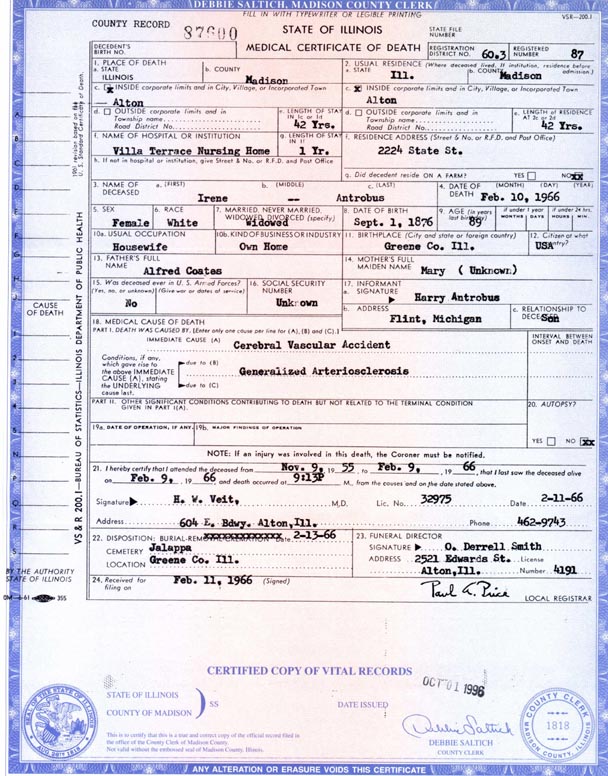 DEBBIE SALTICH, MADISON COUNTY CLERK
FILL IN WITH TYPEWRITER OR LEGIBLE PRINTING
VSR-200.1
COUNTY RECORD 87600 STATE OF ILLINOIS STATE FILE NUMBER
DECEDENT'S BIRTH NO. MEDICAL CERTIFICATE OF DEATH REGISTRATION DISTRICT NO. 60.3 REGISTERED NUMBER 87
1. PLACE OF DEATH 2. USUAL RESIDENCE (Where deceased lived. If institution, residence before admission.)
a. STATE ILLINOIS b. COUNTY Madison a. STATE Ill. b. COUNTY Madison
c. x INSIDE corporate limits and in City, Village, or Incorporated Town c. x INSIDE corporate limits and in City, Village, or Incorporated Town
Alton Alton
d. OUTSIDE corporate limits and in Township name Road District No. e. LENGTH OF STAY IN 1c or 1d 42 Yrs. d. OUTSIDE corporate limits and in Township name Road District No. e. LENGTH OF RESIDENCE AT 2c or 2d 42 Yrs.
f. NAME OF HOSPITAL OR INSTITUTION Villa Terrace Nursing Home g. LENGTH OF STAY IN 1f 1 Yr. f. RESIDENCE ADDRESS (Street & No. or R.F.D. and Post Office) 2224 State St.
h. If not in hospital or institution, give Street & No. or R.F.D. and Post Office g. Did decedent reside ON A FARM? YES NO xx
3. NAME OF DECEASED a. (FIRST) Irene b. (MIDDLE) -- c. (LAST) Antrobus 4. DATE OF DEATH (MONTH) (DAY) (YEAR) Feb. 10, 1966
5. SEX Female 6. RACE White 7. MARRIED, NEVER MARRIED, WIDOWED, DIVORCED (specify) Widowed 8. DATE OF BIRTH Sept. 1, 1876 9. AGE (In years last birthday) 89 if under 1 year MONTHS DAYS if under 24 hrs. HOURS MIN.
10a. USUAL OCCUPATION Housewife 10b. KIND OF BUSINESS OR INDUSTRY Own Home 11. BIRTHPLACE (City and state or foreign country) Greene Co. Ill. 12. Citizen of what country? USA
13. FATHER'S FULL NAME Alfred Coates 14. MOTHER'S FULL MAIDEN NAME Mary ( Unknown)
15. Was deceased ever in U.S. Armed Forces? (Yes, no, or unknown) (Give war or dates of service) No 16. SOCIAL SECURITY NUMBER Unknown 17. INFORMANT a. SIGNATURE Harry Antrobus
b. ADDRESS Flint, Michigan c. RELATIONSHIP TO DECEASED Son
CAUSE OF DEATH
18. MEDICAL CAUSE OF DEATH
PART I. DEATH WAS CAUSED BY. [Enter only one cause per line for (A), (B) and (C).] INTERVAL BETWEEN ONSET AND DEATH
IMMEDIATE CAUSE (A) Cerebral Vascular Accident
Conditions, if any, which gave rise to the above IMMEDIATE CAUSE (A), stating the UNDERLYING cause last.
due to (B) Generalized Arteriosclerosis
due to (C)
PART II. OTHER SIGNIFICANT CONDITIONS CONTRIBUTING TO DEATH BUT NOT RELATED TO THE TERMINAL CONDITION GIVEN IN PART I(A). 20. AUTOPSY?
19a. DATE OF OPERATION, IF ANY. 19b. MAJOR FINDINGS OF OPERATION
YES NO xx
NOTE: If an injury was involved in this death, the Coroner must be notified.
21. I hereby certify that I attended the deceased from Nov. 9, 1955, to Feb. 9, 1966, that I last saw the deceased alive
on Feb. 9, 1966 and death occurred at 9:13P M., from the causes and on the date stated above.
Signature H. W. Veit, M.D. Lic. No. 32975 Date 2-11-66
Address 604 E. Bdwy. Alton, Ill. Phone 462-9743
22. DISPOSITION: BURIAL Date 2-13-66 23. FUNERAL DIRECTOR
CEMETERY Jalappa SIGNATURE O. Derrell Smith
LOCATION Greene Co. Ill. ADDRESS 2521 Edwards St. Alton, Ill. License Number 4191
24. Received for filing on Feb. 11, 1966 (Signed) Paul A. Price LOCAL REGISTRAR
VS&R 200.1—BUREAU OF STATISTICS—ILLINOIS DEPARTMENT OF PUBLIC HEALTH
BY THE AUTHORITY
STATE OF ILLINOIS
CERTIFIED COPY OF VITAL RECORDS
OCT 01 1996
STATE OF ILLINOIS
COUNTY OF MADISON ) SS DATE ISSUED
This is to certify that this is a true and correct copy of the official record filed in
the office of the County Clerk of Madison County.
Not valid without the embossed seal of Madison County, Illinois.
Debbie Saltich
DEBBIE SALTICH
COUNTY CLERK
COUNTY CLERK
1818
MADISON COUNTY, ILLINOIS
SEAL OF THE STATE OF ILLINOIS
AUG. 26TH 1818
ANY ALTERATION OR ERASURE VOIDS THIS CERTIFICATE